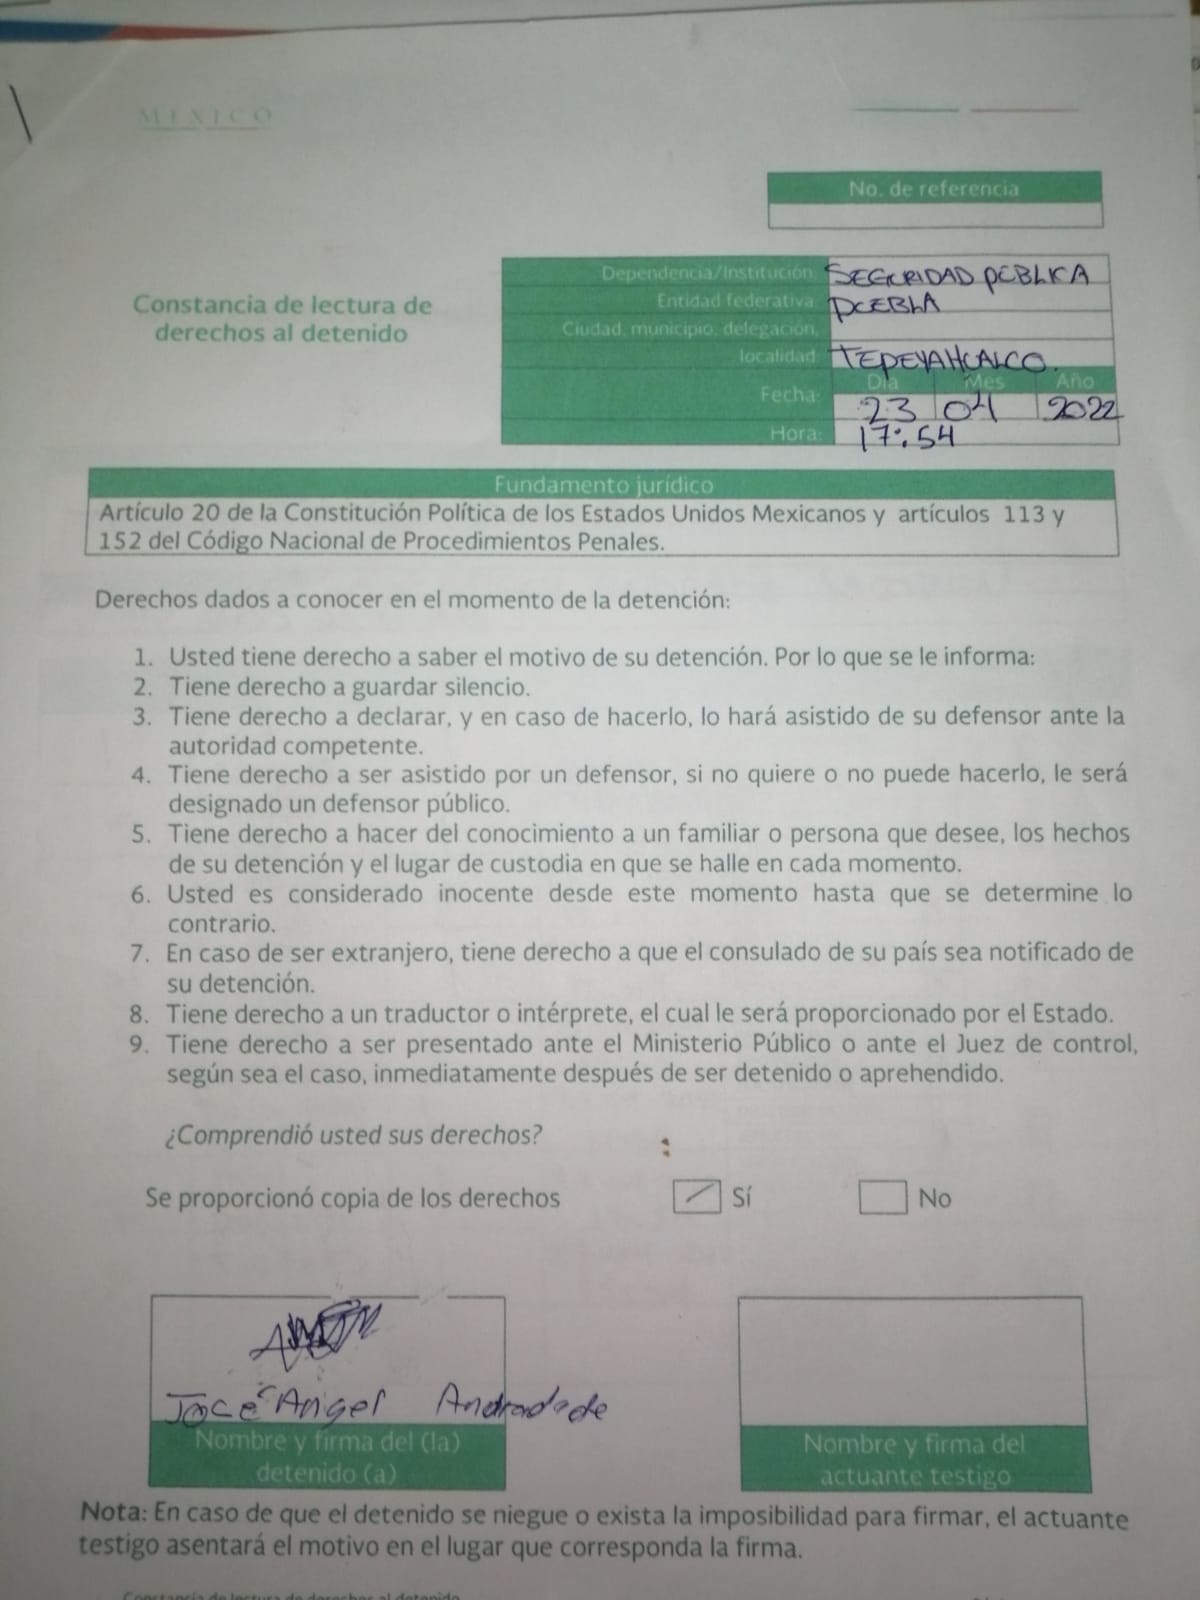 MEXICO
No. de referencia
Constancia de lectura de
derechos al detenido
Dependencia/Institución: SEGURIDAD PÚBLICA
Entidad federativa: PUEBLA
Ciudad, municipio, delegación,
localidad TEPEYAHUALCO.
Fecha: Día Mes Año
23 04 2022
Hora: 17:54
Fundamento jurídico
Artículo 20 de la Constitución Política de los Estados Unidos Mexicanos y artículos 113 y
152 del Código Nacional de Procedimientos Penales.
Derechos dados a conocer en el momento de la detención:
1. Usted tiene derecho a saber el motivo de su detención. Por lo que se le informa:
2. Tiene derecho a guardar silencio.
3. Tiene derecho a declarar, y en caso de hacerlo, lo hará asistido de su defensor ante la
autoridad competente.
4. Tiene derecho a ser asistido por un defensor, si no quiere o no puede hacerlo, le será
designado un defensor público.
5. Tiene derecho a hacer del conocimiento a un familiar o persona que desee, los hechos
de su detención y el lugar de custodia en que se halle en cada momento.
6. Usted es considerado inocente desde este momento hasta que se determine lo
contrario.
7. En caso de ser extranjero, tiene derecho a que el consulado de su país sea notificado de
su detención.
8. Tiene derecho a un traductor o intérprete, el cual le será proporcionado por el Estado.
9. Tiene derecho a ser presentado ante el Ministerio Público o ante el Juez de control,
según sea el caso, inmediatamente después de ser detenido o aprehendido.
¿Comprendió usted sus derechos?
Se proporcionó copia de los derechos Sí No
José Angel Andradade
Nombre y firma del (la)
detenido (a)
Nombre y firma del
actuante testigo
Nota: En caso de que el detenido se niegue o exista la imposibilidad para firmar, el actuante
testigo asentará el motivo en el lugar que corresponda la firma.
Constancia de lectura de derechos al detenido